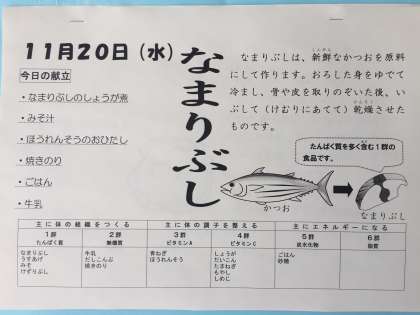 11月20日(水)
今日の献立
・なまりぶしのしょうが煮
・みそ汁
・ほうれんそうのおひたし
・焼きのり
・ごはん
・牛乳
なまりぶし
なまりぶしは、新鮮なかつおを原料
にして作ります。おろした身をゆでて
冷まし、骨や皮を取りのぞいた後、い
ぶして(けむりにあてて)乾燥させ
たものです。
たんぱく質を多く含む1群の
食品です。
かつお
なまりぶし
主に体の組織をつくる
主に体の調子を整える
主にエネルギーになる
1群
たんぱく質
2群
無機質
3群
ビタミンA
4群
ビタミンC
5群
炭水化物
6群
脂質
なまりぶし
うすあげ
みそ
けずりぶし
牛乳
だしこんぶ
焼きのり
青ねぎ
ほうれんそう
しょうが
だいこん
たまねぎ
もやし
しめじ
ごはん
砂糖